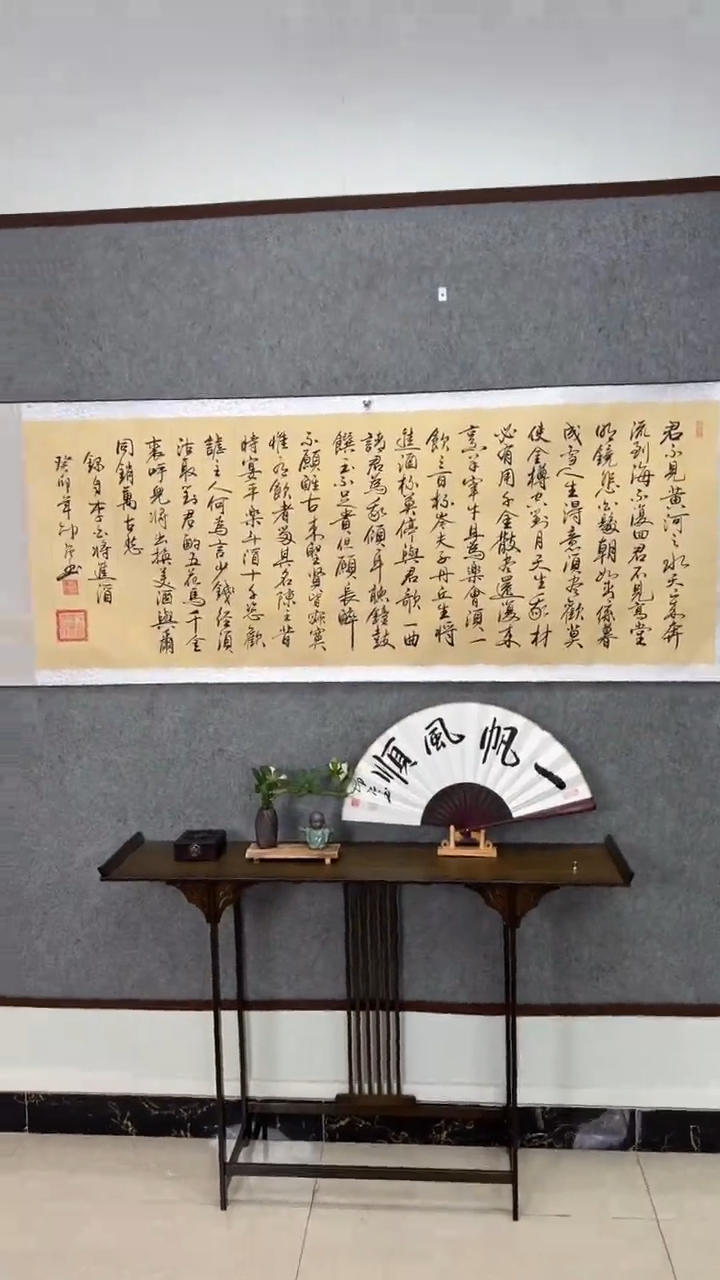 君不見黄河之水天上来奔
流到海不復回君不見高堂
明鏡悲白髮朝如青絲暮
成雪人生得意須盡歡莫
使金樽空對月天生我材
必有用千金散盡還復来
烹羊宰牛且為樂會須一
飲三百杯岑夫子丹丘生將
進酒杯莫停與君歌一曲
請君為我傾耳聽鐘鼓
饌玉不足貴但願長醉
不願醒古来聖賢皆寂寞
惟有飲者留其名陳王昔
時宴平樂斗酒十千恣歡
謔主人何為言少錢徑須
沽取對君酌五花馬千金
裘呼兒將出換美酒與爾
同銷萬古愁
録自李白將進酒
癸卯年
一帆風順